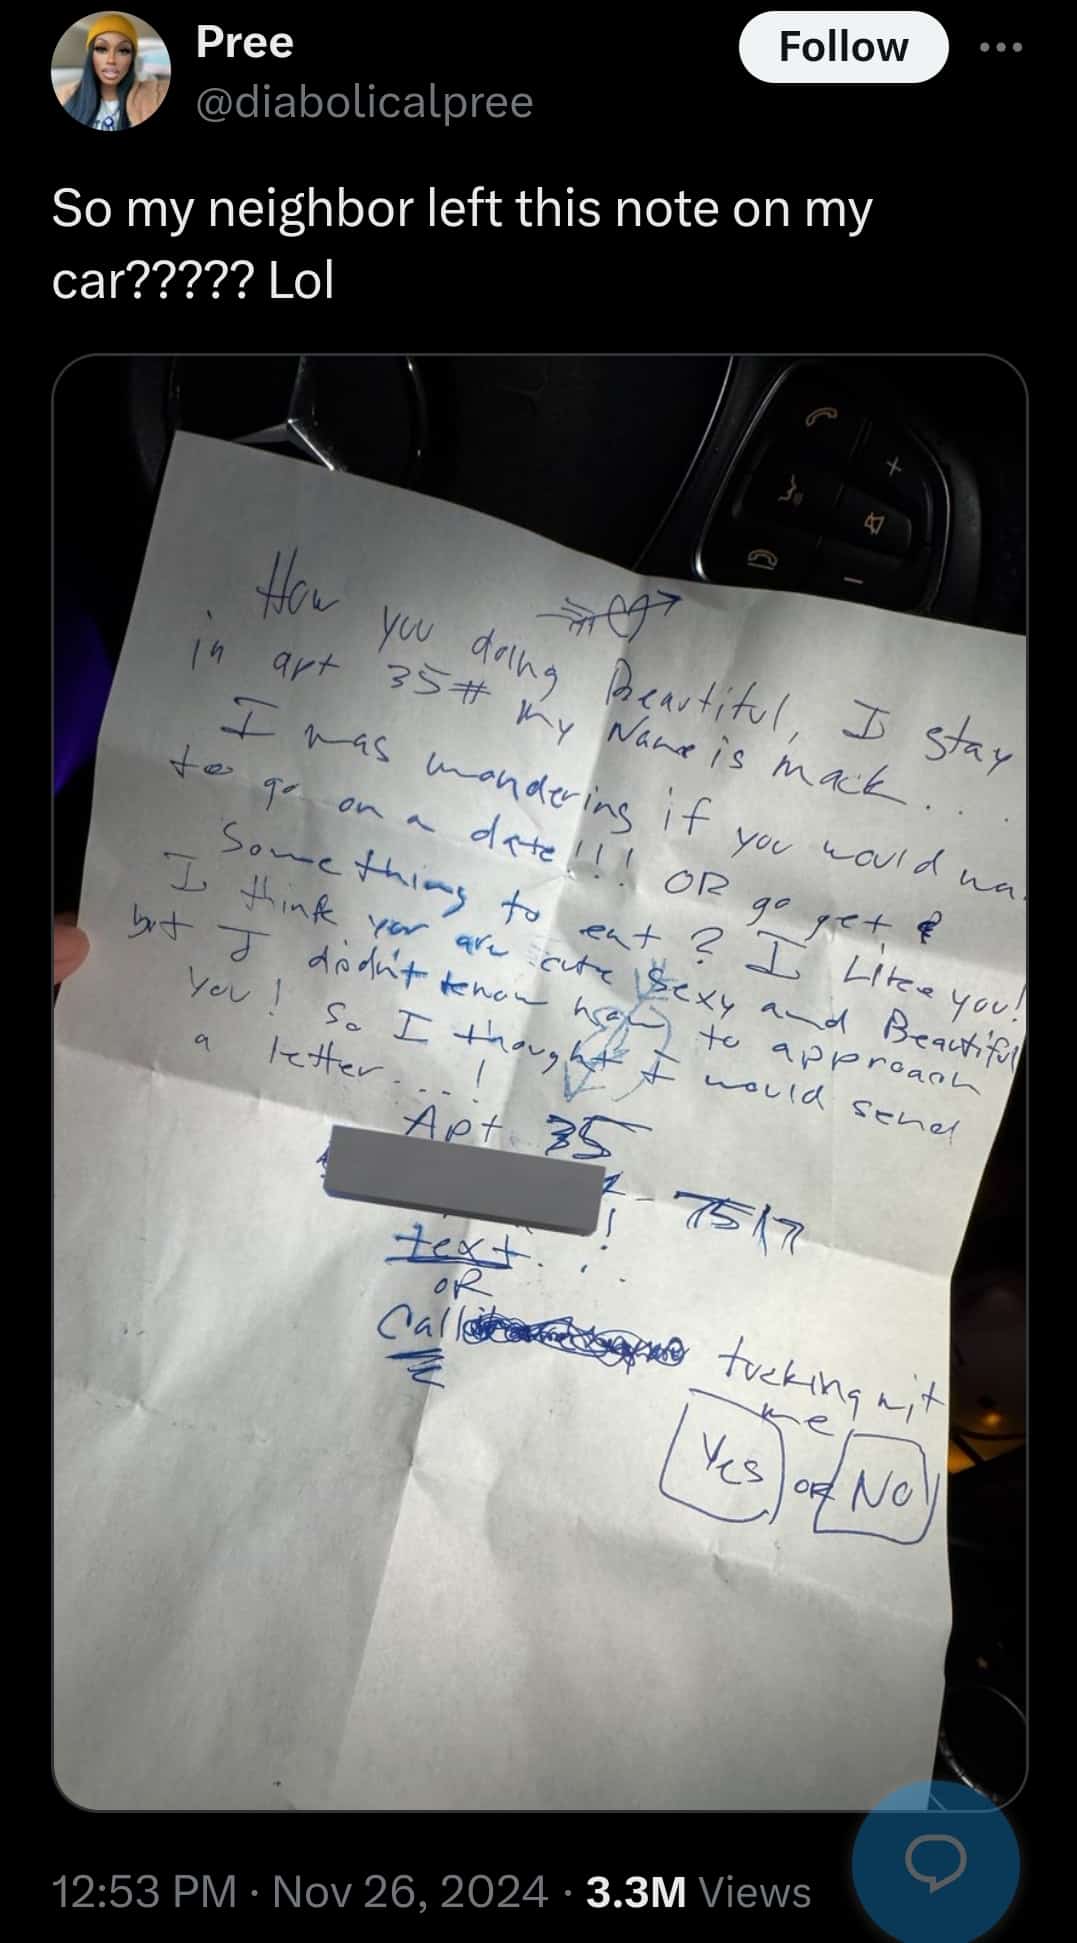 Pree
Follow
@diabolicalpree
So my neighbor left this note on my
car????? Lol
How you doing Beautiful, I stay
in apt 35# my Name is mack...
I was wondering if you would wa
to go on a date!!! OR go get &
Something to eat? I Likee you!
I think your are cute Sexy and Beautiful
but I didn't know how to approach
you! So I thought I would send
a letter....!
Apt. 35
- 7517
text. . . !
OR
Call
fucking wit
me
Yes OR NO
12:53 PM · Nov 26, 2024 · 3.3M Views